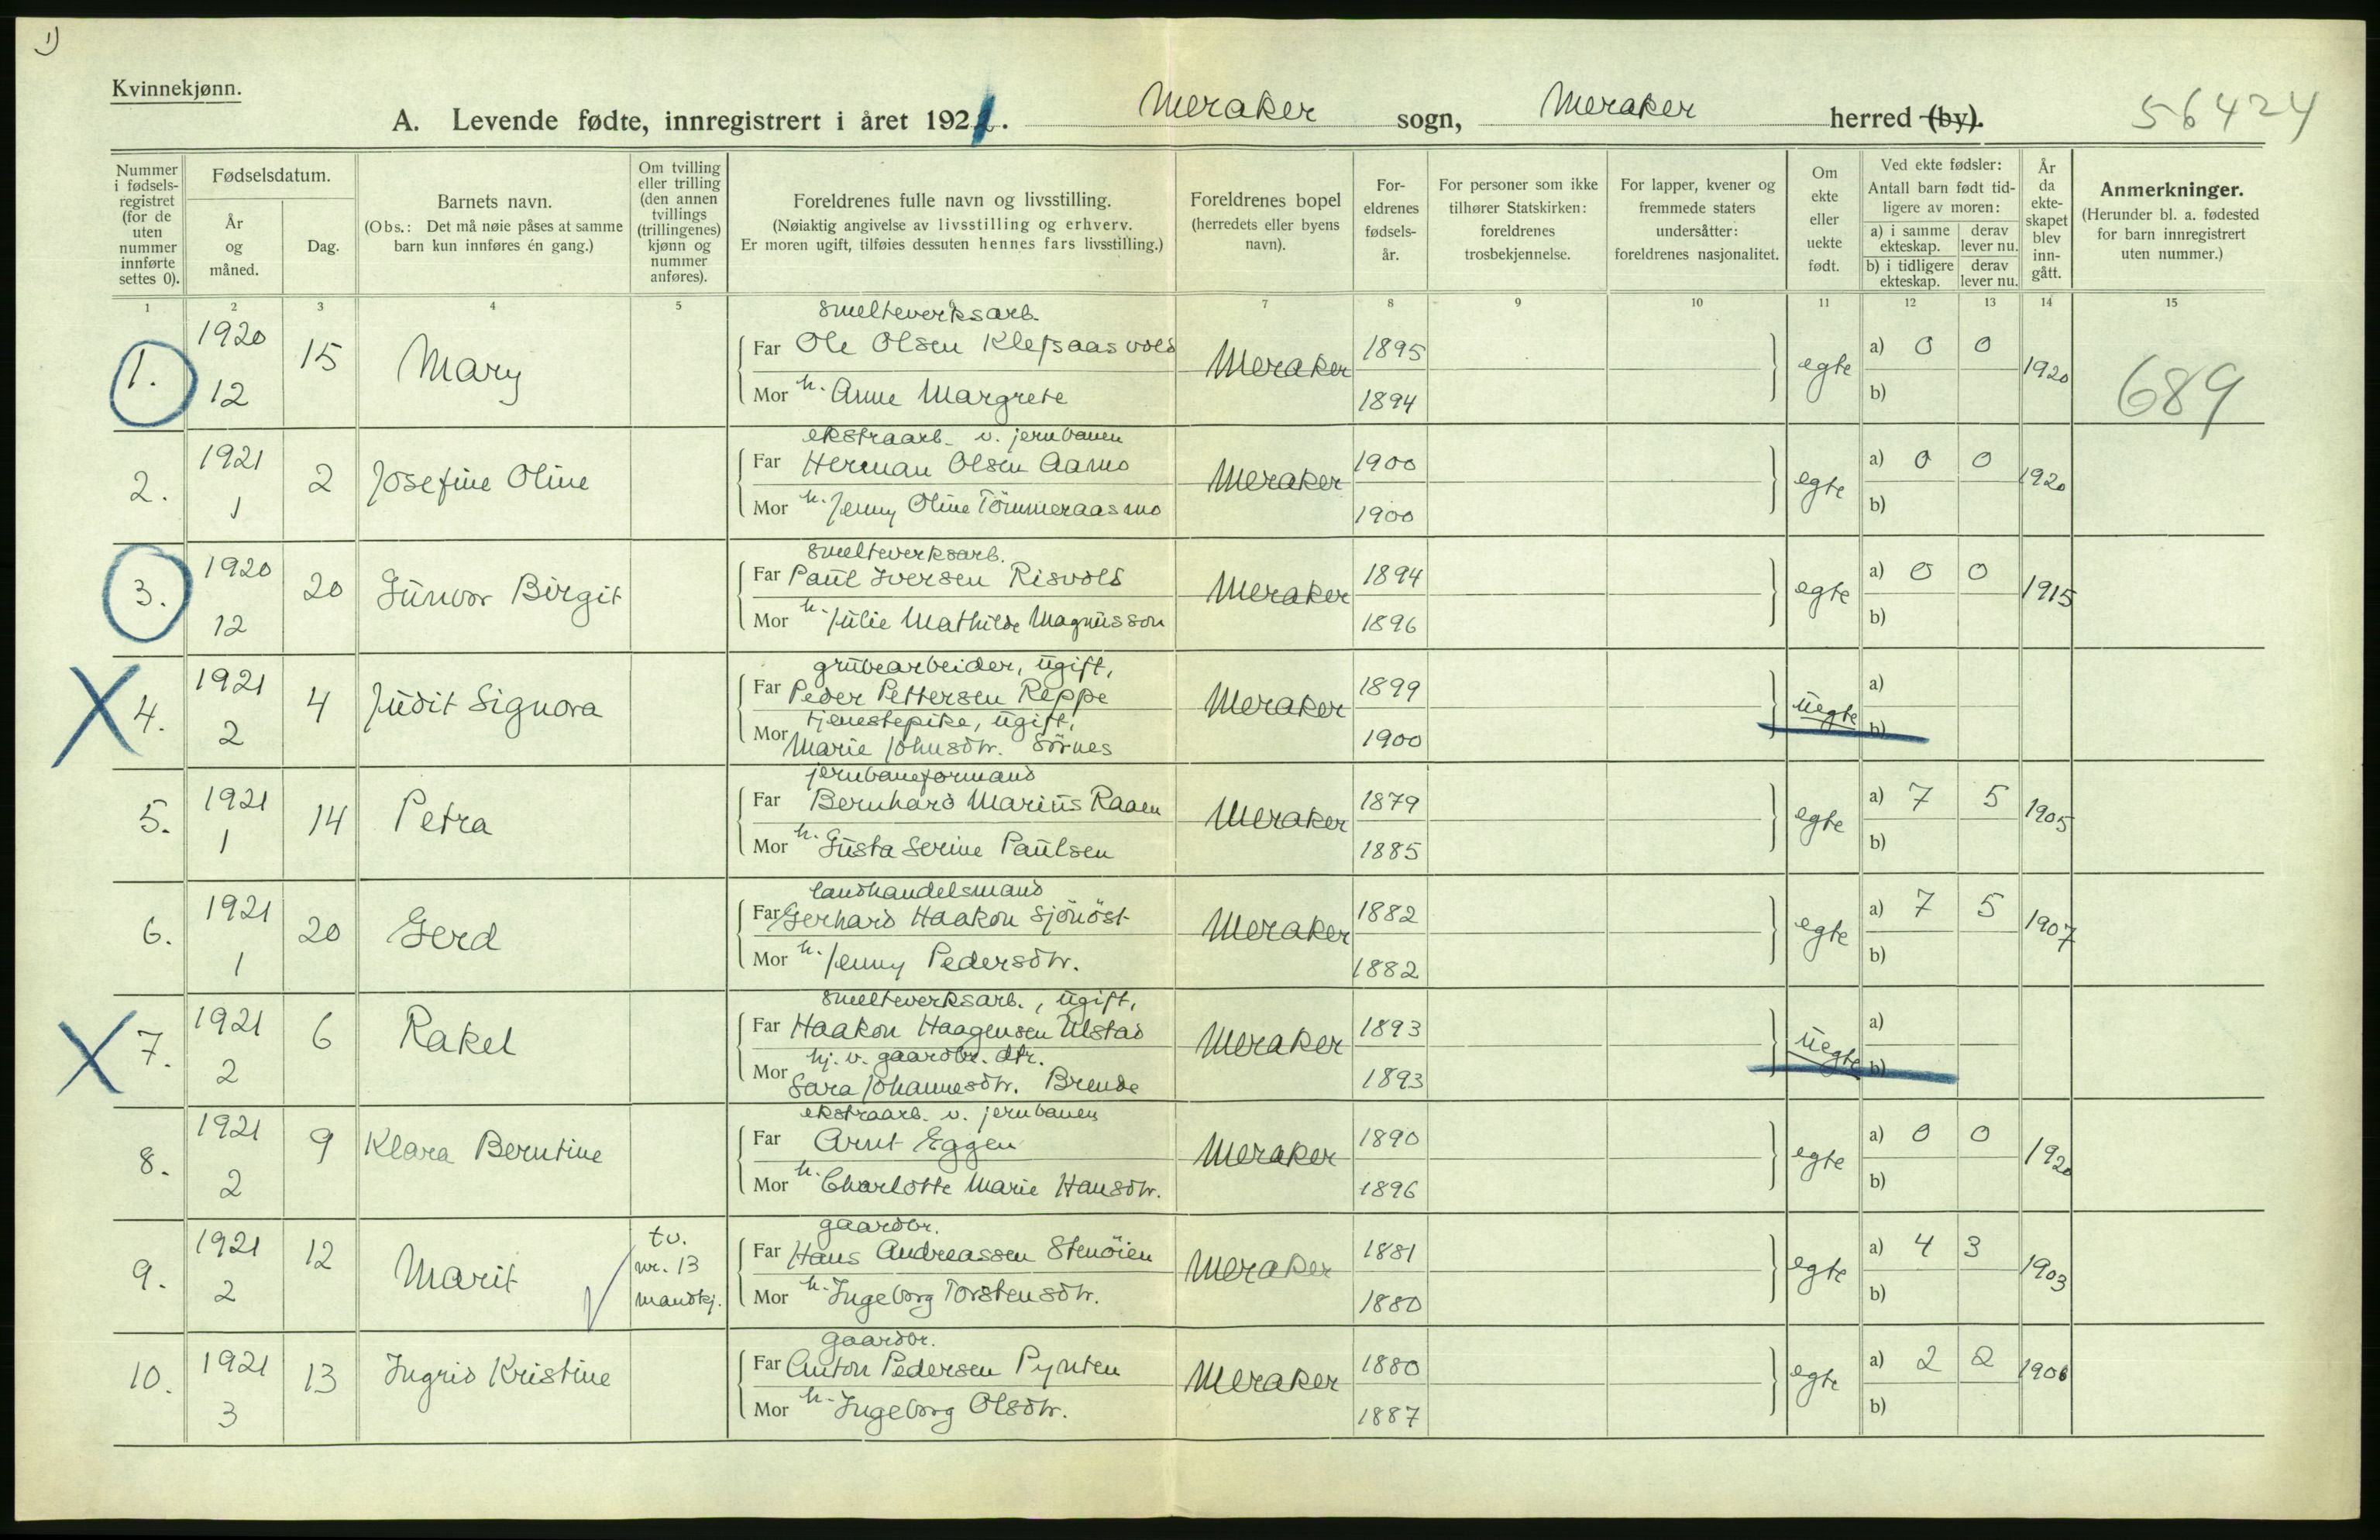 1)
Kvinnekjønn.
A. Levende fødte, innregistrert i året 1921. Meraker sogn, Meraker herred (by).
56424
Nummer i fødsels-registret (for de uten nummer innførte settes 0).
Fødselsdatum.
År og måned.
Dag.
Barnets navn.
(Obs.: Det må nøie påses at samme barn kun innføres én gang.)
Om tvilling eller trilling (den annen tvillings (trillingenes) kjønn og nummer anføres).
Foreldrenes fulle navn og livsstilling.
(Nøiaktig angivelse av livsstilling og erhverv. Er moren ugift, tilføies dessuten hennes fars livsstilling.)
Foreldrenes bopel
(herredets eller byens navn).
For-eldrenes fødsels-år.
For personer som ikke tilhører Statskirken: foreldrenes trosbekjennelse.
For lapper, kvener og fremmede staters undersåtter: foreldrenes nasjonalitet.
Om ekte eller uekte født.
Ved ekte fødsler:
Antall barn født tid-ligere av moren:
a) i samme ekteskap. derav lever nu.
b) i tidligere ekteskap. derav lever nu.
År da ekte-skapet blev inn-gått.
Anmerkninger.
(Herunder bl. a. fødested for barn innregistrert uten nummer.)
1 2 3 4 5 7 8 9 10 11 12 13 14 15
smelteverksarb.
1. 1920 12 15 Mary Far Ole Olsen Klefsaasvold Meraker 1895 egte a) 0 0 1920 689
Mor h. Anne Margrete 1894 b)
ekstraarb. v. jernbanen
2. 1921 1 2 Josefine Oline Far Herman Olsen Aamo Meraker 1900 egte a) 0 0 1920
Mor h. Jenny Oline Tömmeraasmo 1900 b)
smelteverksarb.
3. 1920 12 20 Gunvor Birgit Far Paul Iversen Risvold Meraker 1894 egte a) 0 0 1915
Mor h. Julie Mathilde Magnusson 1896 b)
grubearbeider, ugift,
X 4. 1921 2 4 Judit Signora Far Peder Pettersen Reppe Meraker 1899 uegte a)
tjenestepike, ugift,
Mor Marie Johnsdtr. Sörnes 1900 b)
jernbaneformand
5. 1921 1 14 Petra Far Bernhard Marius Raaen Meraker 1879 egte a) 7 5 1905
Mor h. Gusta Serine Paulsen 1885 b)
landhandelsmand
6. 1921 1 20 Gerd Far Gerhard Haakon Sjönöst Meraker 1882 egte a) 7 5 1907
Mor h. Jenny Pedersdtr. 1882 b)
smelteverksarb., ugift,
X 7. 1921 2 6 Rakel Far Haakon Haagensen Ulstad Meraker 1893 uegte a)
hj. v. gaardbr. dtr.
Mor Sara Johannesdtr. Brende 1893 b)
ekstraarb. v. jernbanen
8. 1921 2 9 Klara Berntine Far Arnt Eggen Meraker 1890 egte a) 0 0 1920
Mor h. Charlotte Marie Hansdtr. 1896 b)
gaardbr.
9. 1921 2 12 Marit tv. nr. 13 mandkj. Far Hans Andreassen Stenöien Meraker 1881 egte a) 4 3 1903
Mor h. Ingeborg Torstensdtr. 1880 b)
gaardbr.
10. 1921 3 13 Ingrid Kristine Far Anton Pedersen Pynten Meraker 1880 egte a) 2 2 1906
Mor h. Ingeborg Olsdtr. 1887 b)